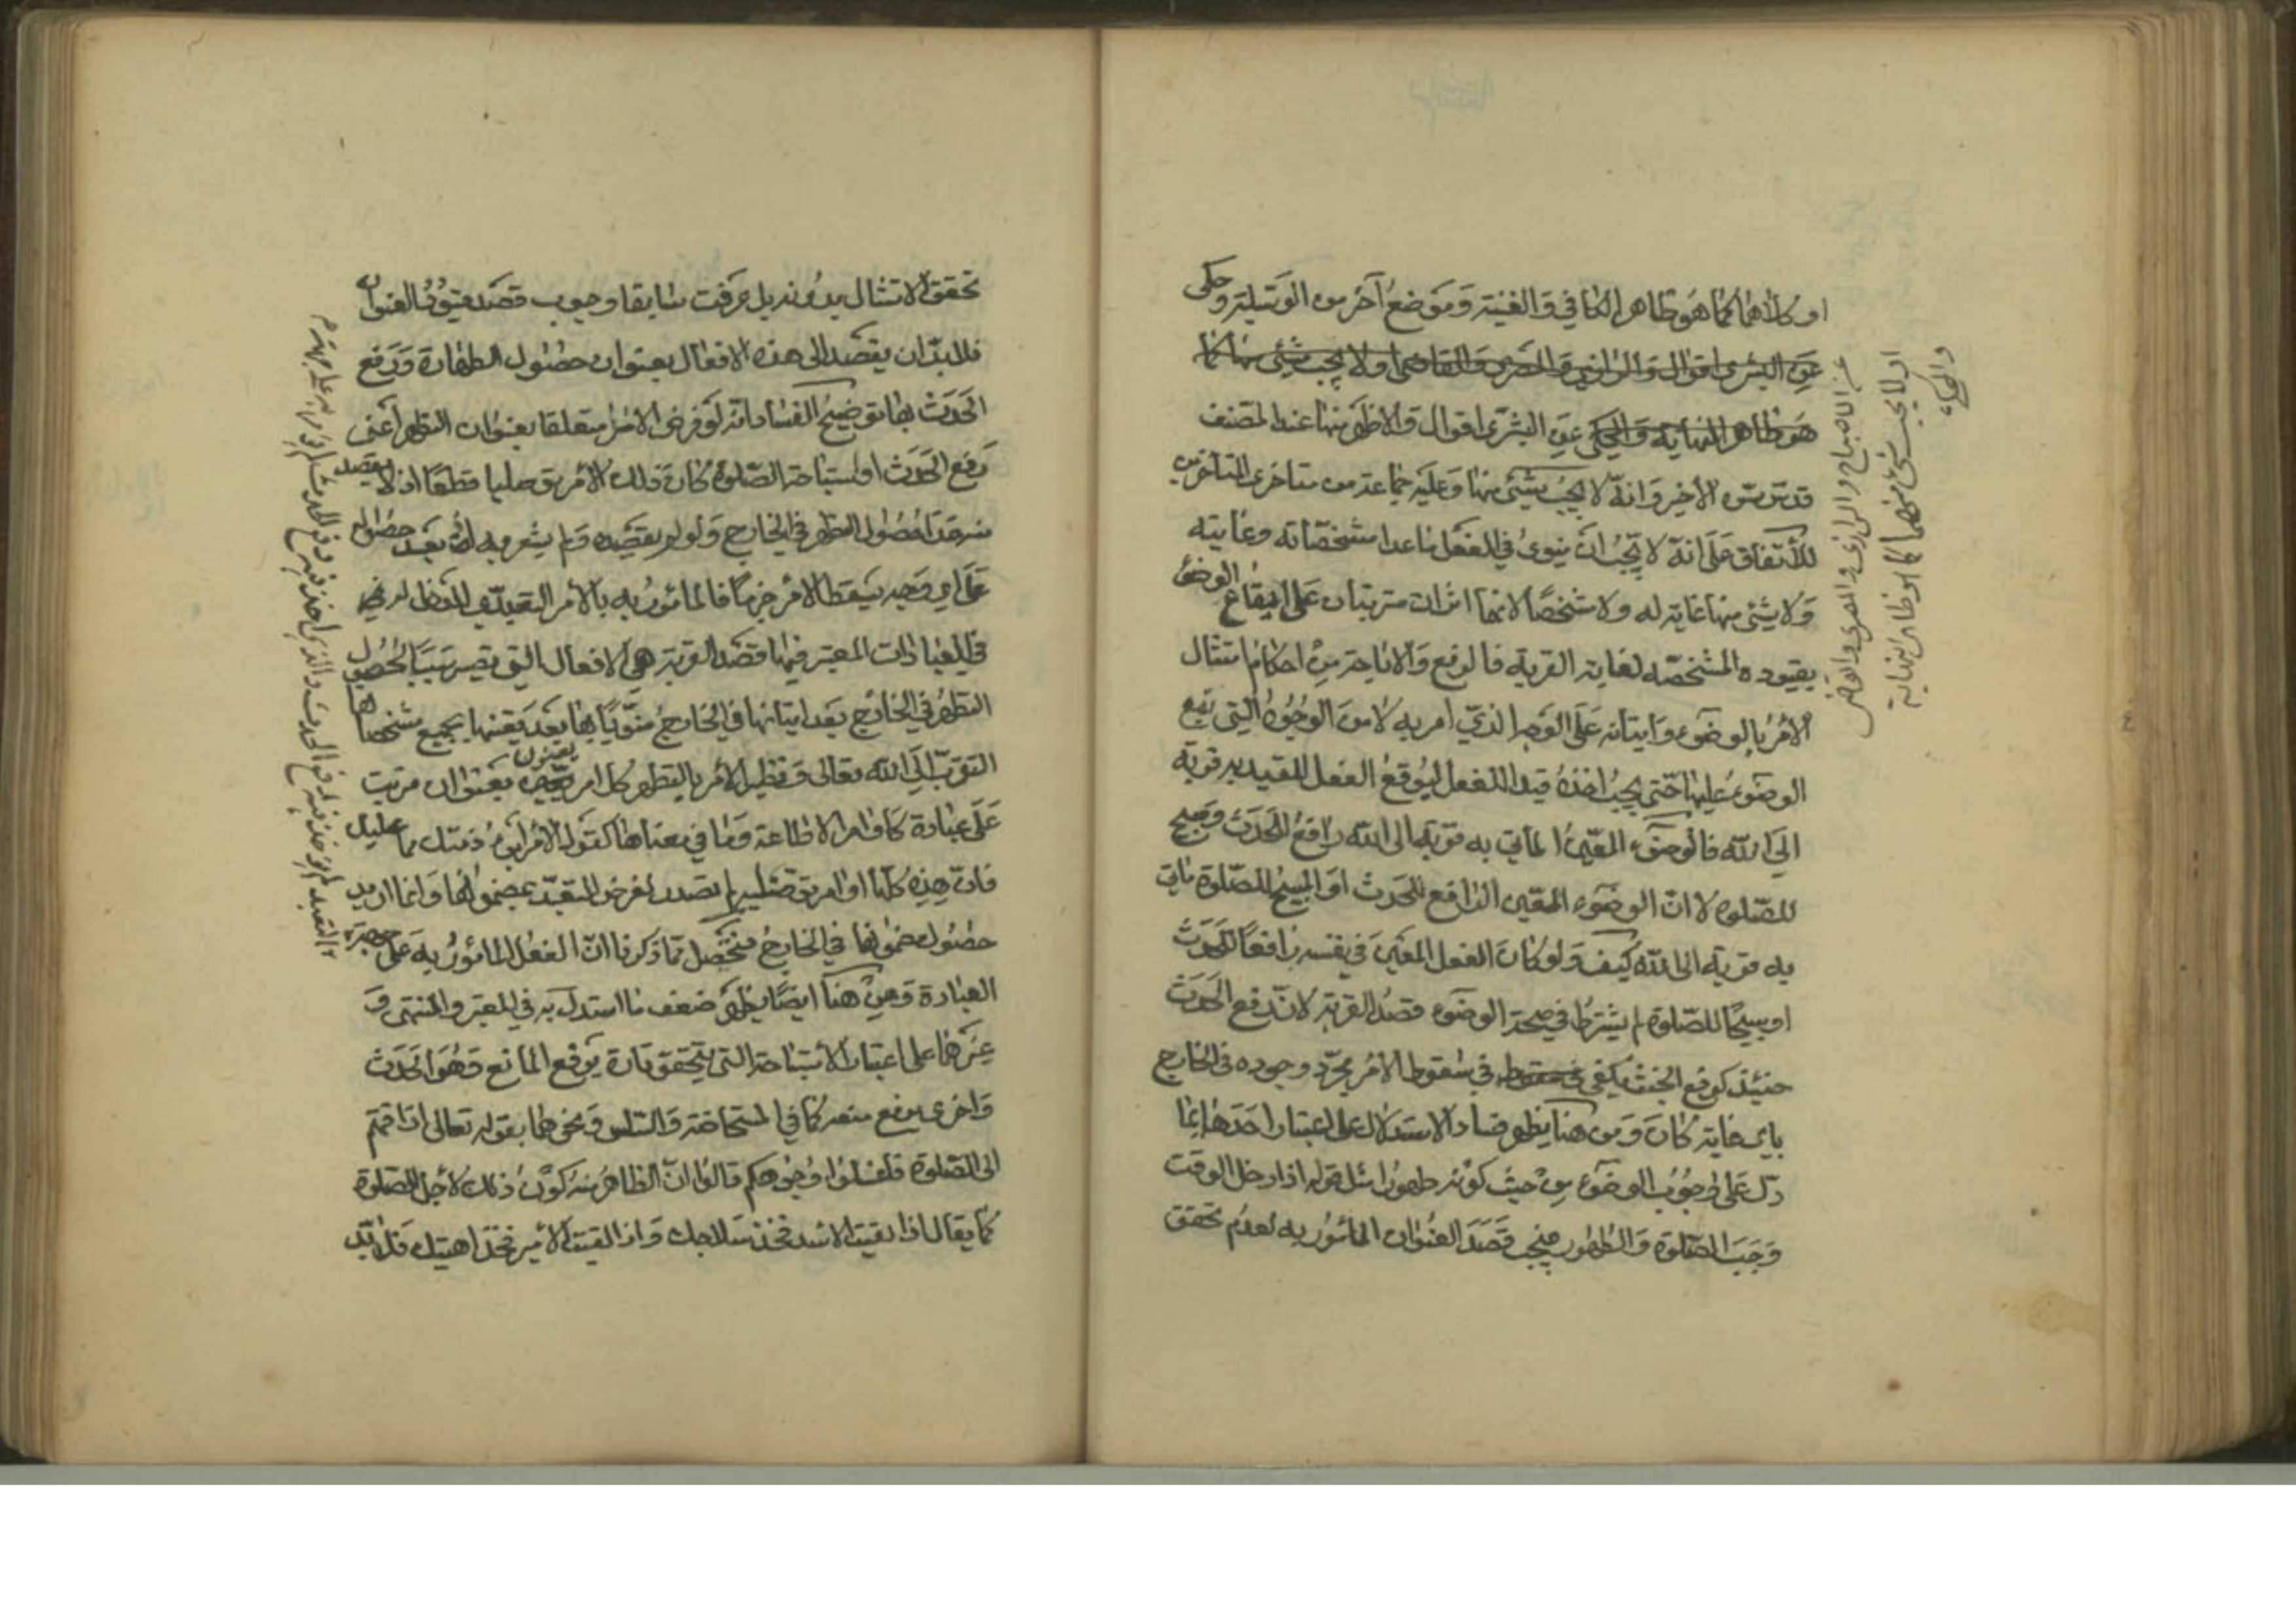 او كلاهما كما هو ظاهر الكافي و الغنية و موضع آخر من الوسيلة و حكى
عن البشرى اقوال و الرازي و المصري و القاضي او لا يجب شئ منها كما
هو ظاهر النهاية و المحكي عن البشرى اقوال و الاظهر منها عند المصنف
قدس سره الأخير و انه لا يجب شئ منها و عليه جماعة من متاخرى المتأخرين
للأتفاق على انه لا يجب ان ينوى في الفعل ما عدا مشخصاته و غايته
و لا شئ منها غاية له و لا مشخصا لانهما اثران مترتبان على ايقاع الوضوء
بقيوده المشخصه لغاية القربة فالرفع و الاباحة من احكام امتثال
الأمر بالوضوء و ايتانه على الوجه الذي امر به لا من الوجوه التي تقع
الوضوء عليها حتى يجب اخذه قيدا للفعل ليوقع الفعل المقيد به قربة
الى الله فالوضوء المعين المأتي به قربة الى الله رافع للحدث و مبيح
للصلوة لا ان الوضوء المعين الرافع للحدث او المبيح للصلوة ياتى
به قربة الى الله كيف و لو كان الفعل المعين في نفسه رافعا للحدث
او مبيحا للصلوة لم يشترط في صحة الوضوء قصد القربة لان رفع الحدث
حينئذ كرفع الخبث يكفي في سقوط الأمر بمجرد وجوده في الخارج
باى غاية كان و من هنا يظهر فساد الاستدلال على اعتبار احدهما بما
دل على وجوب الوضوء من حيث كونه طهورا مثل قوله اذا دخل الوقت
وجب الصلوة و الطهور فيجب قصد العنوان المأمور به لعدم تحقق
عن الاصباح و الرازى و المصرى و القاضى
او لا يجب شئ منهما كما هو ظاهر النهاية
و المحكى
تحقق الامتثال بدونه بل عرفت سابقا وجوب قصد قيود العنوان
فلا بد ان يقصد الى هذه الافعال بعنوان حصول الطهارة و رفع
الحدث بها توضيح الفساد انه لو فرض الأمر متعلقا بعنوان التطهر اعنى
رفع الحدث او استباحة الصلوة كان ذلك الأمر توصليا قطعا اذ لا يقصد
منه عدا حصول التطهر في الخارج و لو لم يقصده و لم يشعر به بعد حصوله
على اى وجه يسقط الأمر جزما فالمامور به بالأمر التعبدي
في العبادات المعتبر فيها قصد القربة هي الافعال التي تصير سببا لحصول
التطهر في الخارج بعد ايتانها في الخارج منويا بها بعد تعينها بجميع مشخصاتها
التقرب الى الله تعالى و نظير الأمر بالتطهر كل امر بعنوان مرتب
على عبادة كاوامر الاطاعة و ما في معناها كقوله الأمر ابرئ ذمتك مما عليك
فان هذه كلها اوامر توصلية لم تصدر لغرض التعبد بمضمونها و انما اريد
حصول مضمونها في الخارج فتحصل مما ذكرنا ان الفعل المامور به على جهة
العبادة و من هنا ايضا يظهر ضعف ما استدل به في المعتبر و المنتهى و
غيرهما على اعتبار الأستباحة التى يتحقق تارة برفع المانع و هو الحدث
و اخرى برفع منعه كما في المستحاضة و السلس و نحوهما بقوله تعالى اذا قمتم
الى الصلوة فاغسلوا وجوهكم قالوا ان الظاهر منه كون ذلك لأجل الصلوة
كما يقال اذا لقيت الاسد فخذ سلاحك و اذا لقيت الأمير فخذ اهبتك فلا بد